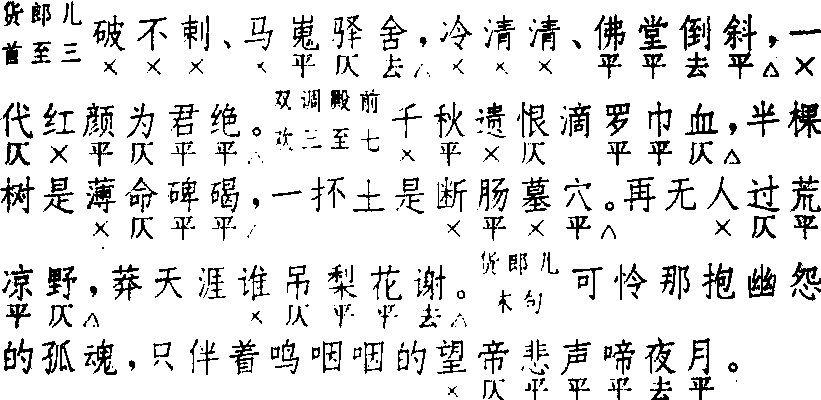 货郎儿
首至三 破不剌、马嵬驿舍,冷清清、佛堂倒斜,一
× × × × 平 仄 去 △ × × × 平 平 去 平 △ ×
代红颜为君绝。双调殿前
欢三至七 千秋遗恨滴罗巾血,半棵
仄 × 平 仄 平 平 △ × 平 × 仄 平 平 仄 △
树是薄命碑碣,一抔土是断肠墓穴。再无人过荒
× 仄 平 平 △ × 平 × 平 △ × 仄 平
凉野,莽天涯谁吊梨花谢。货郎儿
末句 可怜那抱幽怨
平 仄 △ × 仄 平 平 去 △
的孤魂,只伴着鸣咽咽的望帝悲声啼夜月。
× 仄 平 平 平 去 平